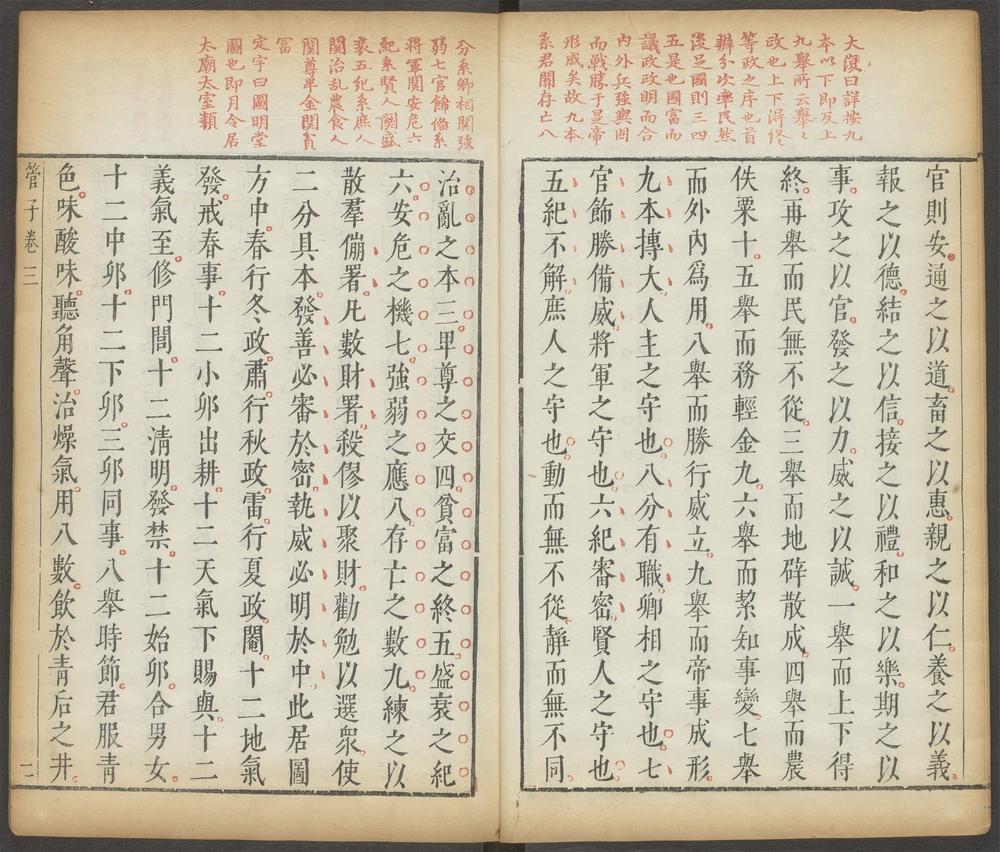 大復曰詳按九
本以下即反上
九舉所云舉々
政也上下得終
等政之序也首
辦分次率民然
後足國則三四
五是也國富而
議政政明而合
内外兵強與囯
而戰勝于是帝
形成矣故九本
系君關存亡八
官則安通之以道畜之以惠親之以仁養之以義
報之以德結之以信接之以禮和之以樂期之以
事攻之以官發之以力威之以誠一舉而上下得
終再舉而民無不從三舉而地辟散成四舉而農
佚粟十五舉而務輕金九六舉而絜知事變七舉
而外内爲用八舉而勝行威立九舉而帝事成形
九本搏大人主之守也八分有職卿相之守也七
官飾勝備威將軍之守也六紀審密賢人之守也
五紀不解庶人之守也動而無不從靜而無不同
分系卿相關強
弱七官餙俻系
将軍関安危六
紀系賢人関盛
衰五紀系庶人
関治乱農食人
関尊卑金関貧
冨
定宇曰圖明堂
圖也即月令居
太廟太室類
治亂之本三卑尊之交四貧富之終五盛衰之紀
六安危之機七強弱之應八存亡之數九練之以
散羣傰署凡數財署殺僇以聚財勸勉以選衆使
二分具本發善必審於密執威必明於中此居圖
方中春行冬政肅行秋政雷行夏政閹十二地氣
發戒春事十二小卯出耕十二天氣下賜與十二
義氣至修門閭十二清明發禁十二始卯合男女
十二中卯十二下卯三卯同事八舉時節君服青
色味酸味聽角聲治燥氣用八數飲於青后之井
管子卷三